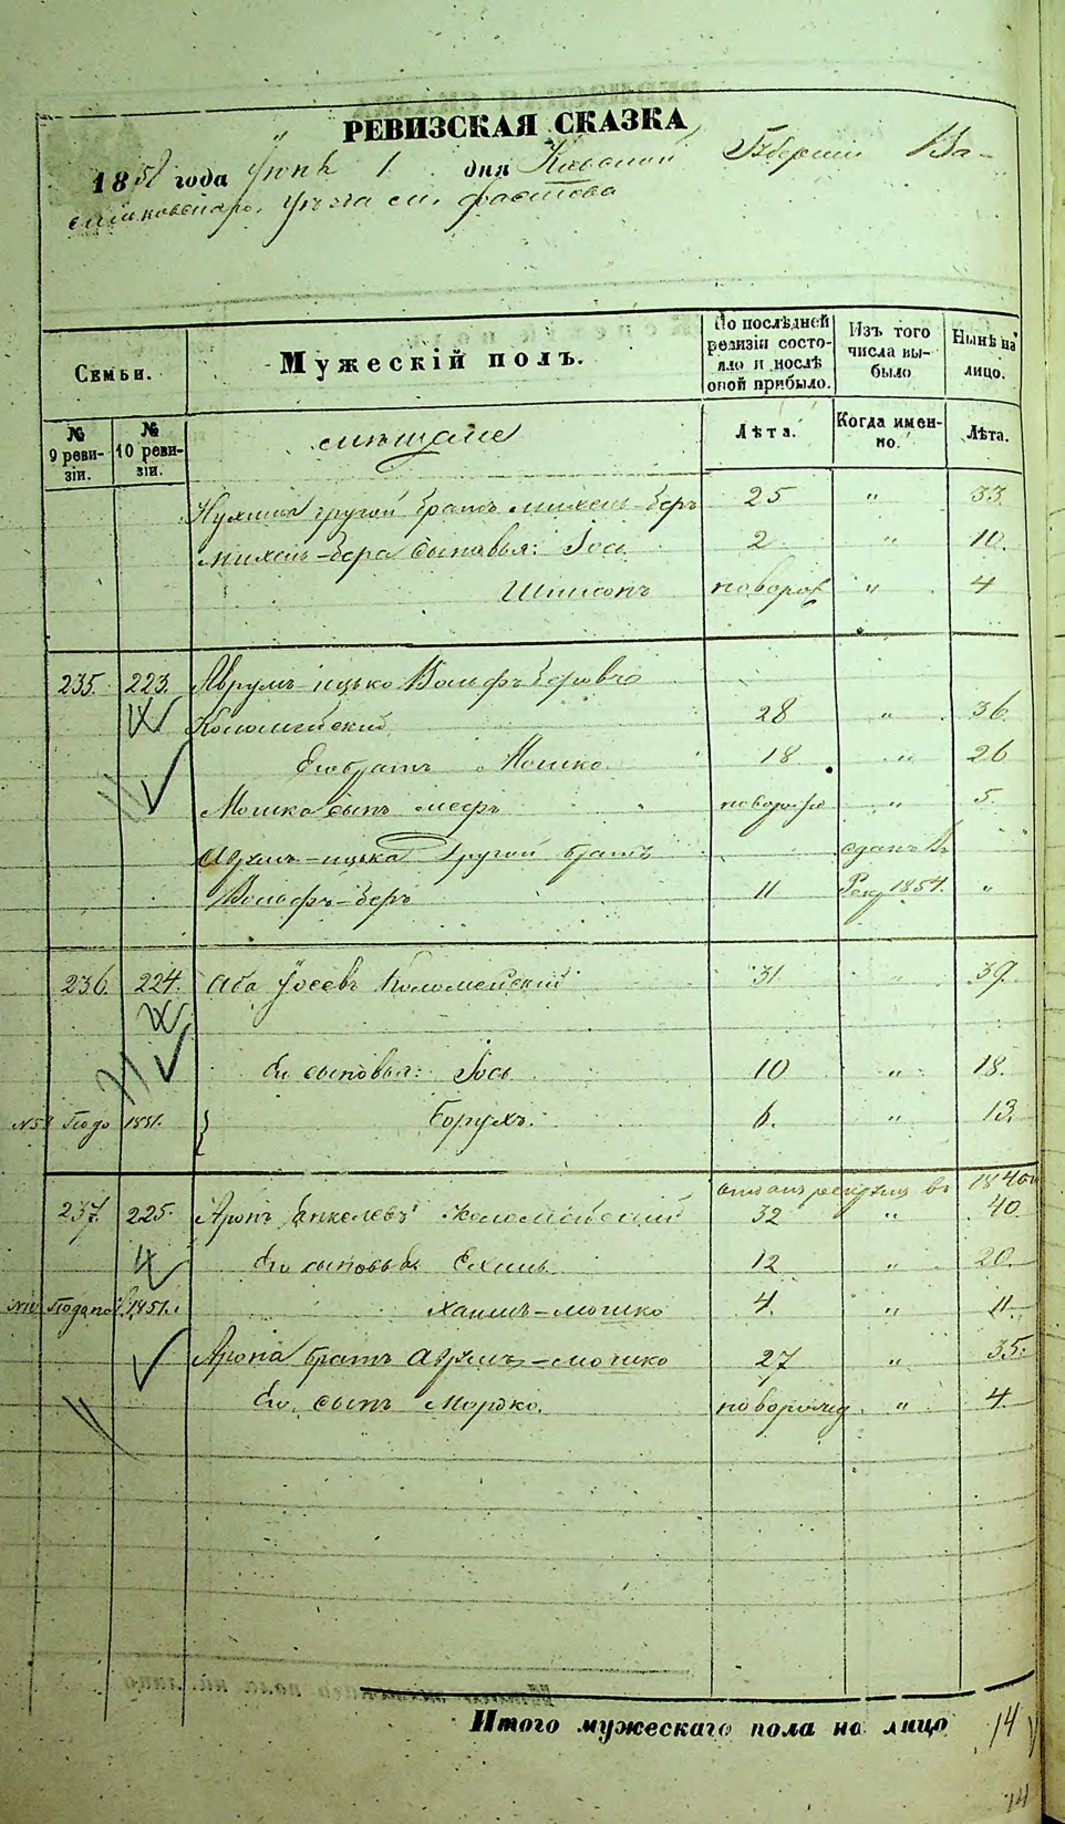 РЕВИЗСКАЯ СКАЗКА
1858 года Іюня 1 дня Кіевской Губерніи Ва-
сильковскаго уѣзда м. Фастова
Семьи.
Мужескій полъ.
По послѣдней ревизіи состояло и послѣ оной прибыло.
Изъ того числа выбыло
Нынѣ на лицо.
№ 9 ревизіи.
№ 10 ревизіи.
мѣщане
Лѣта.
Когда именно.
Лѣта.
другой братъ Михель-Беръ 25 " 33.
Михель-Бера сыновья: Іось 2 " 10.
Шимонъ новорож " 4
235. 223. Аврумъ-Ицько Вольфъ Беровъ
Коломійскій 28 " 36.
Его братъ Мошко 18 " 26
Мошка сынъ новорож " 5.
Аврумъ-Ицька другой братъ сданъ въ
Вольфъ-Беръ 11 Рек 1854. "
236. 224. Аба Іосевъ Коломейскій 31 " 39.
Ег. сыновья: Іось 10 " 18.
1851. Борухъ. 6. " 13.
отданъ рекруты въ 1840
237. 225. Аронъ Янкелевъ Коломейскій 32 " 40
Его сыновья Ехиль 12 " 20.
1851. Хаимъ-Мошко 4. " 11.
Арона братъ Аврумъ-Мошко 27 " 35.
Его сынъ Мордко. новорожд " 4.
Итого мужескаго пола на лицо 14
14